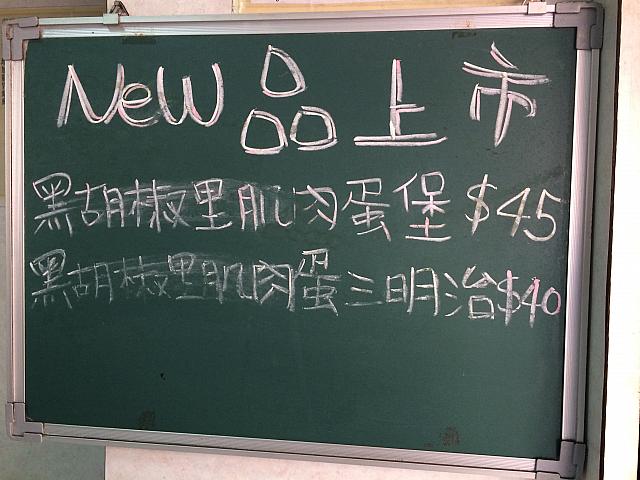 New 品上市
黑胡椒里肌肉蛋堡 $45
黑胡椒里肌肉蛋三明治$40